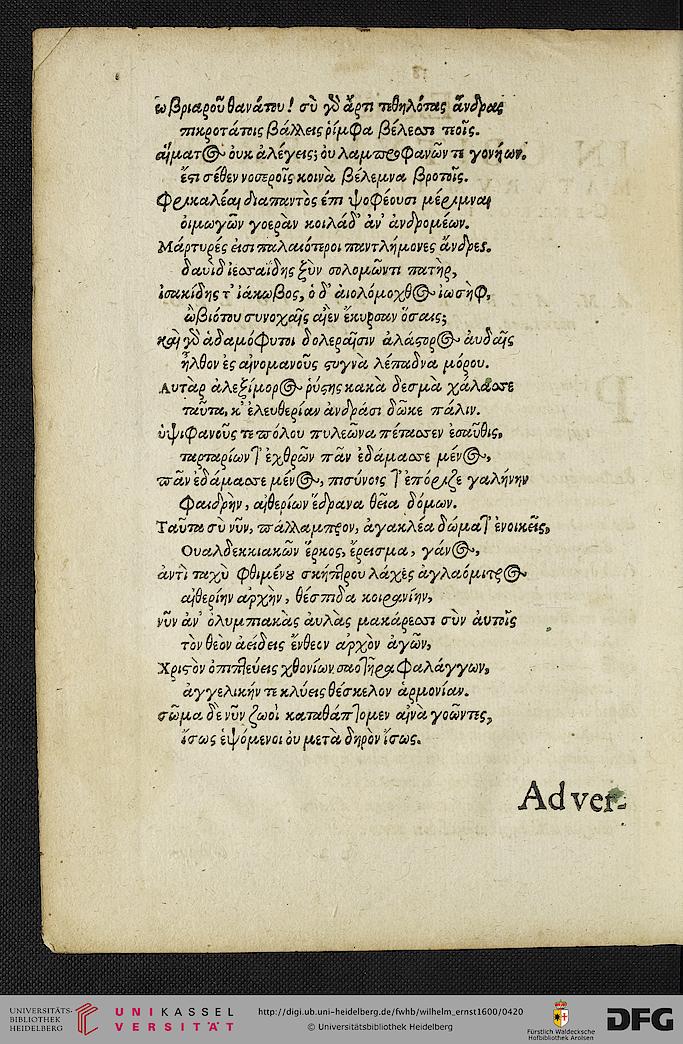 ὦ βριαροῦ θανάτου! σὺ γὸ ἄρτι τεθηλότας ἄνδρας
πικροτάτοις βάλλεις ῥίμφα βέλεσσι τεοῖς.
αἵματος οὐκ ἀλέγεις; οὐ λαμπροφανῶν τε γονήων.
ἔστι σέθεν νοσεροῖς κοινὰ βέλεμνα βροτοῖς.
Φρικαλέαι διαπαντὸς ἐπι ψοφέουσι μέριμναι
οἰμωγῶν γοερὰν κοιλάδ' ἀν' ἀνδρομέων.
Μάρτυρές εἰσι παλαιότεροι παντλήμονες ἄνδρες.
δαυὶδ ἰεσσαΐδης ξὺν σολομῶντι πατὴρ,
ἰσακίδης τ' ἰάκωβος, ὁ δ' αἰολόμοχθος ἰωσὴφ,
ὢ βιότου συνοχαῖς αἰὲν ἔκυρσαν ὅσαις;
καὶ γὸ ἀδαμόφυτοι δολεραῖσιν ἀλάστορος αὐδαῖς
ἦλθον ἐς αἰνομανοῦς στυγνὰ λέπαδνα μόρου.
Αὐτὰρ ἀλεξίμορος ῥύστης κακὰ δεσμὰ χάλασσε
ταῦτα, κ' ἐλευθερίαν ἀνδράσι δῶκε πάλιν.
ὑψιφανοῦς τε πόλου πυλεῶνα πέτασσεν ἐσαῦθις,
ταρταρίων τ' ἐχθρῶν πᾶν ἐδάμασσε μένος,
πᾶν ἐδάμασσε μένος, πισύνοις τ' ἐπόριζε γαλήνην
Φαιδρὴν, αἰθερίων ἕδρανα θεῖα δόμων.
Ταῦτα σὺ νῦν, πάλλαμπρον, ἀγακλέα δώματ' ἐνοικεῖς,
Ουαλδεκκιακῶν ἕρκος, ἔρεισμα, γάνος,
ἀντὶ ταχὺ φθιμένου σκήπτρου λάχες ἀγλαόμιτρος
αἰθερίην ἀρχὴν, θέσπιδα κοιρανίην,
νῦν ἀν' ὀλυμπιακὰς αὐλὰς μακάρεσσι σὺν αὐτοῖς
τὸν θεὸν ἀείδεις ἔνθεον ἀρχὸν ἀγῶν,
Χριστὸν ὀπιπτεύεις χθονίων σαοτῆρα φαλάγγων,
ἀγγελικήν τε κλύεις θέσκελον ἁρμονίαν.
σῶμα δὲ νῦν ζωοὶ καταθάπτομεν αἰνὰ γοῶντες,
ἴσως ἑψόμενοι οὐ μετὰ δηρὸν ἴσως.
Adver-
UNIVERSITÄTS-
BIBLIOTHEK
HEIDELBERG
UNIKASSEL
VERSITÄT
http://digi.ub.uni-heidelberg.de/fwhb/wilhelm_ernst1600/0420
© Universitätsbibliothek Heidelberg
Fürstlich Waldecksche
Hofbibliothek Arolsen
DFG